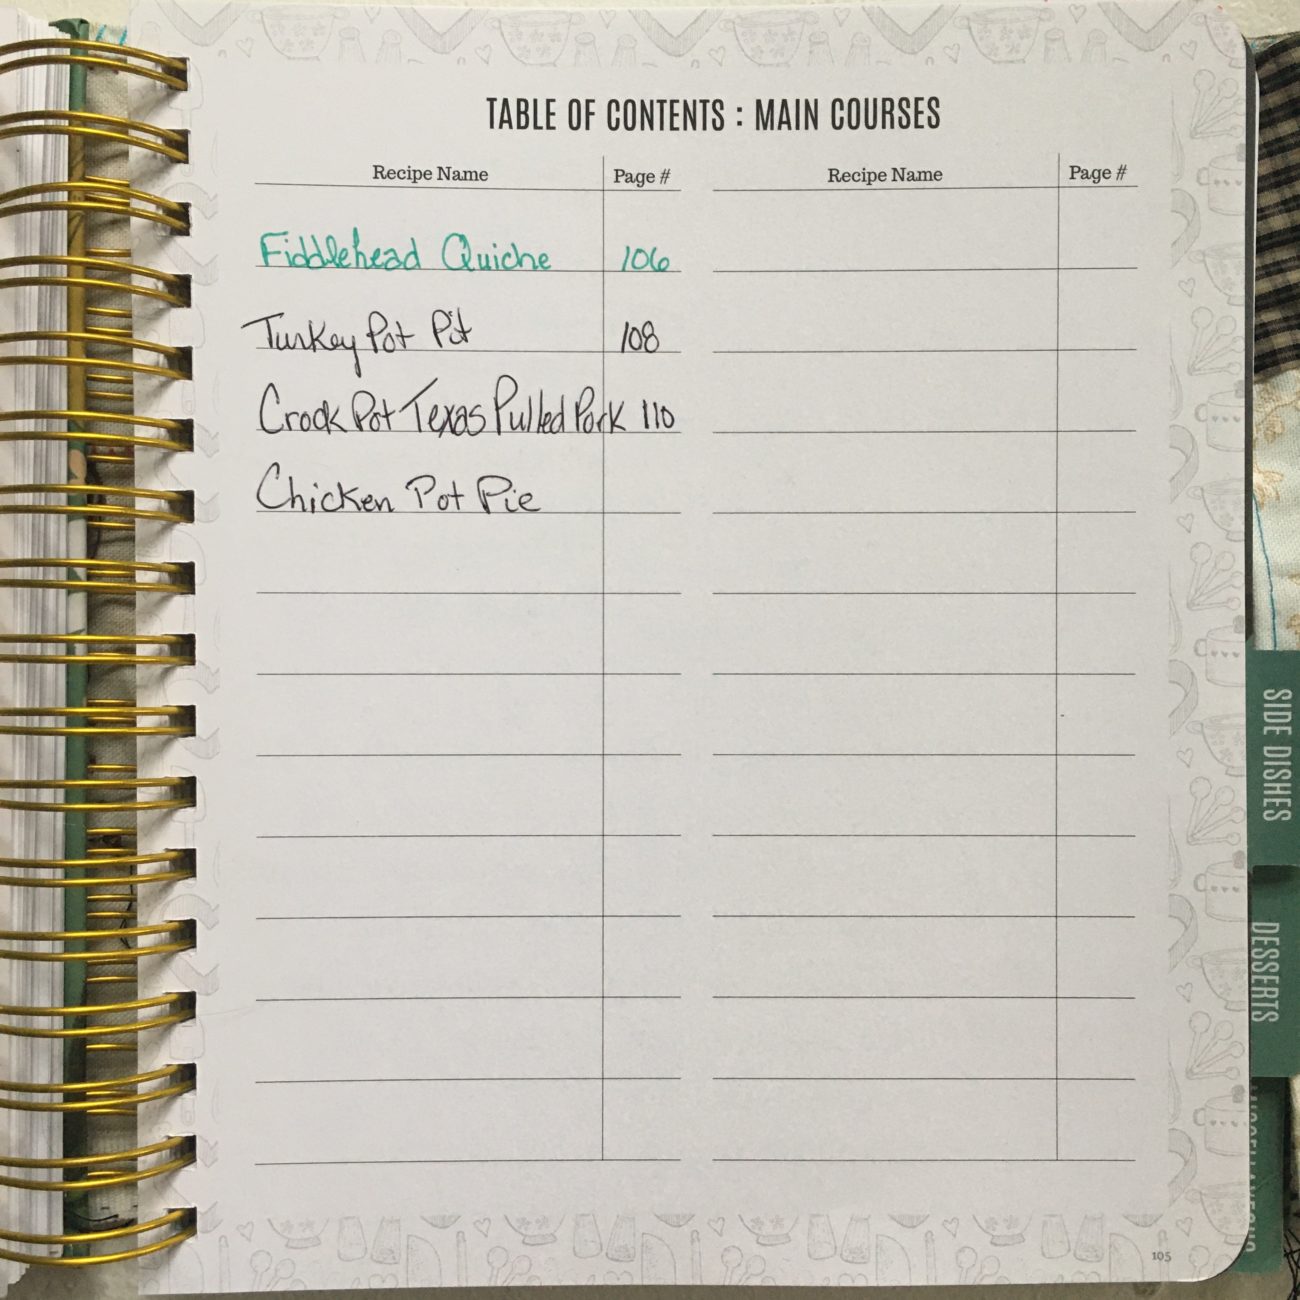 TABLE OF CONTENTS : MAIN COURSES
Recipe Name Page # Recipe Name Page #
Fiddlehead Quiche 106
Turkey Pot Pit 108
Crock Pot Texas Pulled Pork 110
Chicken Pot Pie
SIDE DISHES
DESSERTS
MISCELLANEOUS
105